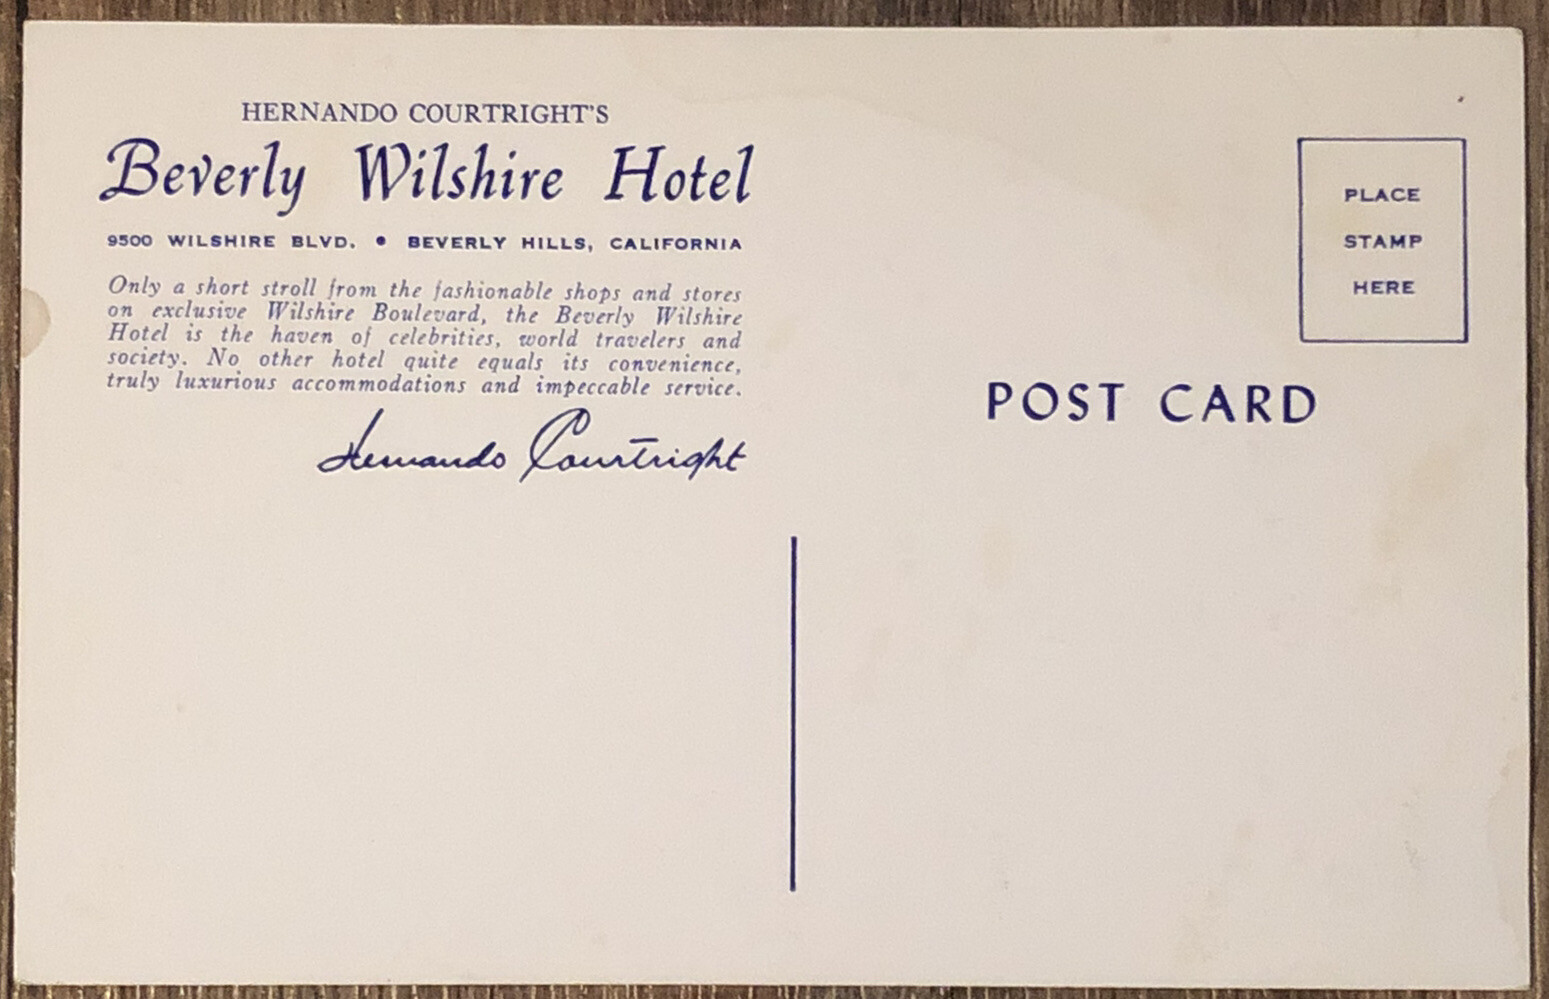 HERNANDO COURTRIGHT'S
Beverly Wilshire Hotel
9500 WILSHIRE BLVD. • BEVERLY HILLS, CALIFORNIA
Only a short stroll from the fashionable shops and stores
on exclusive Wilshire Boulevard, the Beverly Wilshire
Hotel is the haven of celebrities, world travelers and
society. No other hotel quite equals its convenience,
truly luxurious accommodations and impeccable service.
Hernando Courtright
PLACE
STAMP
HERE
POST CARD